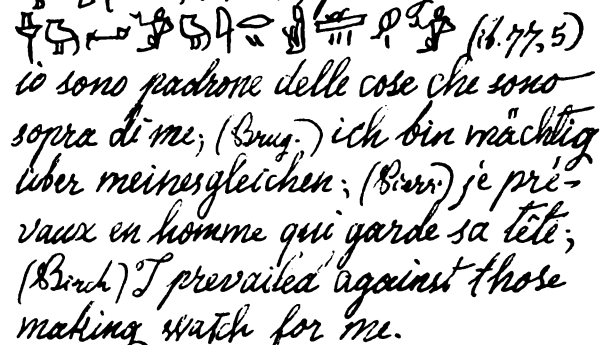 (ib. 77, 5)
io sono padrone delle cose che sono
sopra di me; (Brug.) ich bin mächtig
über meinesgleichen; (Pierr.) je pré-
vaux en homme qui garde sa tête;
(Birch) I prevailed against those
making watch for me.